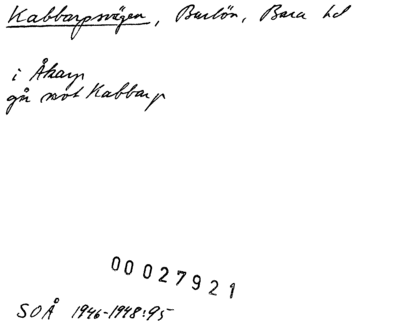 Kabbarpsvägen, Burlöv, Bara hd
i Åkarp
går mot Kabbarp
00027921
SOÅ 1946-1948:95